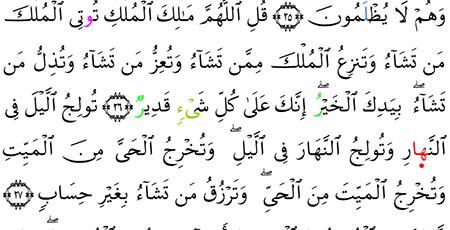 وَهُمْ لَا يُظْلَمُونَ ۝٢٥ قُلِ اِ۬للَّهُمَّ مَٰلِكَ اَ۬لْمُلْكِ تُوتِى اِ۬لْمُلْكَ
مَن تَشَآءُ وَتَنزِعُ اُ۬لْمُلْكَ مِمَّن تَشَآءُ وَتُعِزُّ مَن تَشَآءُ وَتُذِلُّ مَن
تَشَآءُۖ بِيَدِكَ اَ۬لْخَيْرُۖ إِنَّكَ عَلَىٰ كُلِّ شَيْءٖ قَدِيرٞۖ ۝٢٦ تُولِجُ اُ۬ليْلَ فِى
اِ۬لنَّهارِ وَتُولِجُ اُ۬لنَّهَارَ فِى اِ۬ليْلِۖ وَتُخْرِجُ اُ۬لْحَيَّ مِنَ اَ۬لْمَيِّتِ
وَتُخْرِجُ اُ۬لْمَيِّتَ مِنَ اَ۬لْحَيِّۖ وَتَرْزُقُ مَن تَشَآءُ بِغَيْرِ حِسَابٖۖ ۝٢٧